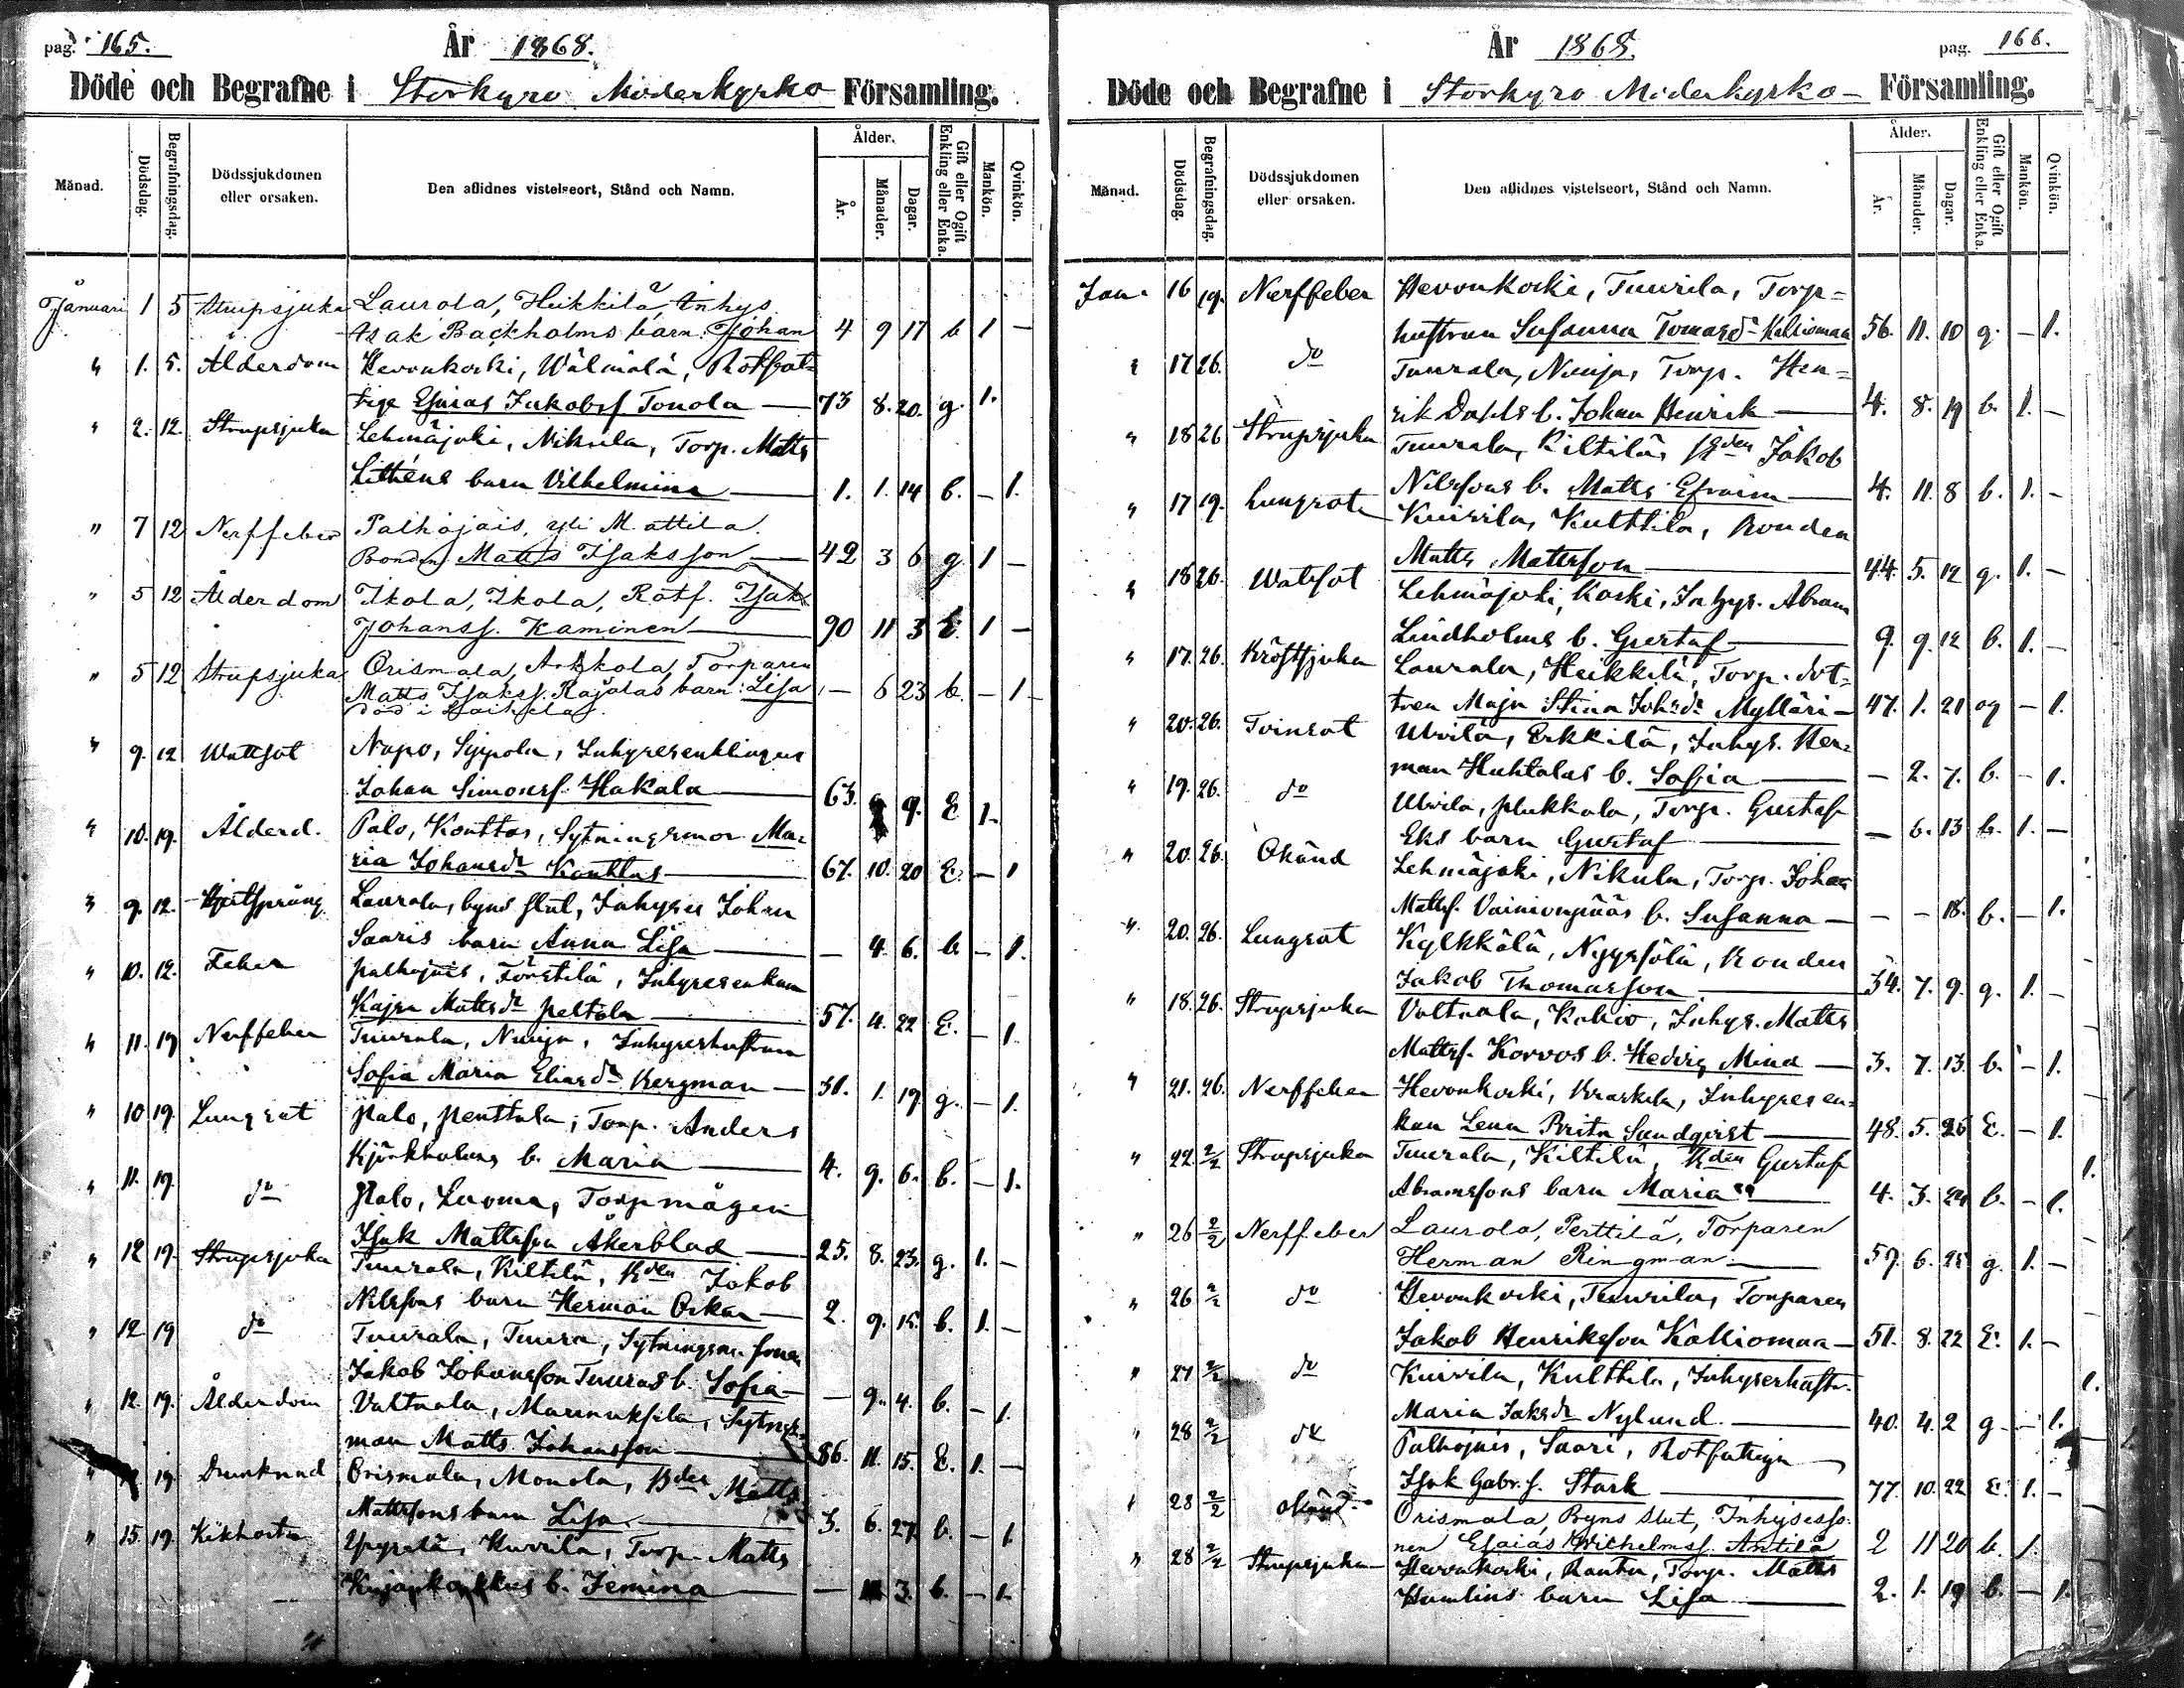 pag. 165.
År 1868.
Döde och Begrafne i Storkyro Moderkyrko Församling.
Månad.
Dödsdag.
Begrafningsdag.
Dödssjukdomen eller orsaken.
Den aflidnes vistelseort, Stånd och Namn.
Ålder.
År.
Månader.
Dagar.
Gift eller Ogift Enkling eller Enka.
Mankön.
Qvinkön.
Januari 1 5 Strupsjuka Laurola, Heikkilä, Inhys
Isak Backholms barn Johan 4 9 17 b 1 —
" 1. 5. Ålderdom Hevonkoski, Wälmälä, Rotfat=
tige Esaias Jakobsf Tonola — 73 8. 20. g. 1.
" 2. 12. Strupsjuka Lehmäjoki, Nikula, Torp. Matts
Litthéns barn Vilhelmina — 1. 1. 14 b. — 1.
" 7 12 Nerffeber Palhojais, yli Mattila.
Bonden Matts Isaksson — 42 3 6 g 1 —
" 5 12 Ålderdom Ikola, Ikola, Rotf. Isak
Johanss. Kaminen — 90 11 3 E. 1 —
" 5 12 Strupsjuka Orismala, Torparen
Matts Isakss. Rajalas barn: Lisa — 6 23 b. — 1 —
död i
" 9. 12 Wattsot Napo, Syppola, Inhysesenklingen
Johan Simonsf. Hakala — 63. 9. E 1.
" 10. 19. Ålderd. Palo, Konttas, Sytningsmor Ma=
ria Johansdr Konttas — 67. 10. 20 E. — 1
" 9. 12. Hjertsprång Laurola, byns slut, Inhyses Johan
Saaris barn Anna Lisa — — 4. 6. b — 1.
" 10. 12. Feber Palhojais, Förstilä, Inhysesenkan
Kajsa Mattsdr Peltola — 57. 4. 22 E. — 1.
" 11. 19 Nerffeber Tuurala, Nuija, Inhyseshustrun
Sofia Maria Eliasdr Bergman — 31. 1. 19 g. — 1.
" 10 19. Lungsot Palo, Penttala, Torp. Anders
Kjörkholms b. Maria — 4. 9. 6. b. — 1.
" 11. 19. do Palo, Luoma, Torpmågen
Isak Mattsson Åkerblad — 25. 8. 23. g. 1. —
" 12 19. Strupsjuka Tuurala, Kiltilä, Bden Jakob
Nilssons barn Herman Oskar — 2. 9. 15. b. 1. —
" 12 19 do Tuurala, Tuura, Sytningsm. sonen
Jakob Johansson Tuuras b. Sofia — — 9. 4. b. — 1.
" 12. 19. Ålderdom Valtaala, Marunuksela, Sytnings=
man Matts Johansson — 86. 11. 15. E. 1. —
" 19. Drunknad Orismala, Monola, Bden Matts
Mattssons barn Lisa — 3. 6. 27. b. — 1.
" 15. 19. Kikhosta Ypyrilä, Kuvila, Torp. Matts
b. Jemina — — 3. b. — 1.
År 1868.
pag. 166.
Döde och Begrafne i Storkyro Moderkyrko- Församling.
Månad.
Dödsdag.
Begrafningsdag.
Dödssjukdomen eller orsaken.
Den aflidnes vistelseort, Stånd och Namn.
Ålder.
År.
Månader.
Dagar.
Gift eller Ogift Enkling eller Enka.
Mankön.
Qvinkön.
Jan. 16 19. Nerffeber Hevonkoski, Tuurila, Torp=
hustrun Susanna Tomasdr Kalliomaa 56. 11. 10 g. — 1.
" 17 26. do Tuurala, Nuija, Torp. Hen=
rik Dahls b. Johan Henrik — 4. 8. 19 b. 1. —
" 18 26 Strupsjuka Tuurala, Kiltilä, Bden Jakob
Nilssons b. Matts Efraim — 4. 11. 8 b. 1. —
" 17 19. Lungsot Kuivila, Kulttila, Bonden
Matts Mattsson — 44. 5. 12 g. 1. —
" 18 26. Watsot Lehmäjoki, Koski, Inhys. Abram
Lindholms b. Gustaf — 9. 9. 12 b. 1. —
" 17. 26. Bröstsjuka Laurola, Heikkilä, Torp. dot=
tren Maja Stina Johsdr Mylläri — 47. 1. 21 og — 1.
" 20. 26. Tvinsot Ulvila, Erkkilä, Inhys. Her=
man Huhtalas b. Sofia — — 2. 7. b. — 1.
" 19. 26. do Ulvila, Plukkala, Torp. Gustaf
Eks barn Gustaf — — 6. 13 b. 1. —
" 20. 26. Okänd Lehmäjoki, Nikula, Torp. Johan
Mattsf. Vainionpääs b. Susanna — — — 18. b. — 1.
" 20. 26. Lungsot Kylkkälä, Nyyssölä, Bonden
Jakob Thomasson — 34. 7. 9. g. 1. —
" 18. 26. Strupsjuka Valtaala, Kalvo, Inhys. Matts
Mattsf. Korvos b. Hedvig Mina — 3. 7. 13. b. — 1.
" 21. 26. Nerffeber Hevonkoski, Kraskila, Inhysesen=
kan Lena Brita Sundqvist — 48. 5. 26 E. — 1.
" 22. 2/2 Strupsjuka Tuurala, Kiltilä, Bden Gustaf
Abramssons barn Maria — 4. 3. 24 b. — 1.
" 26 2/2 Nerffeber Laurola, Perttilä, Torparen
Herman Ringman — 59. 6. 25 g. 1. —
" 26 2/2 do Hevonkoski, Tuurila, Torparen
Jakob Henriksson Kalliomaa — 51. 8. 22 E. 1. —
" 27 2/2 do Kuivila, Kulttila, Inhyseshustr.
Maria Jaksdr Nylund — 40. 4. 2 g — 1.
" 28 2/2 do Palhojais, Saari, Rotfattiga
Isak Gabr. f. Stark — 77. 10. 22 E. 1. —
" 28 2/2 Okänd Orismala, Byns slut, Inhysesso=
nen Esaias Wilhelmsf. Antila 2 11 20 b. 1.
" 28 2/2 Strupsjuka Hevonkoski, Rauta, Torp. Matts
Hamlins barn Lisa — 2. 1. 19 b. — 1.